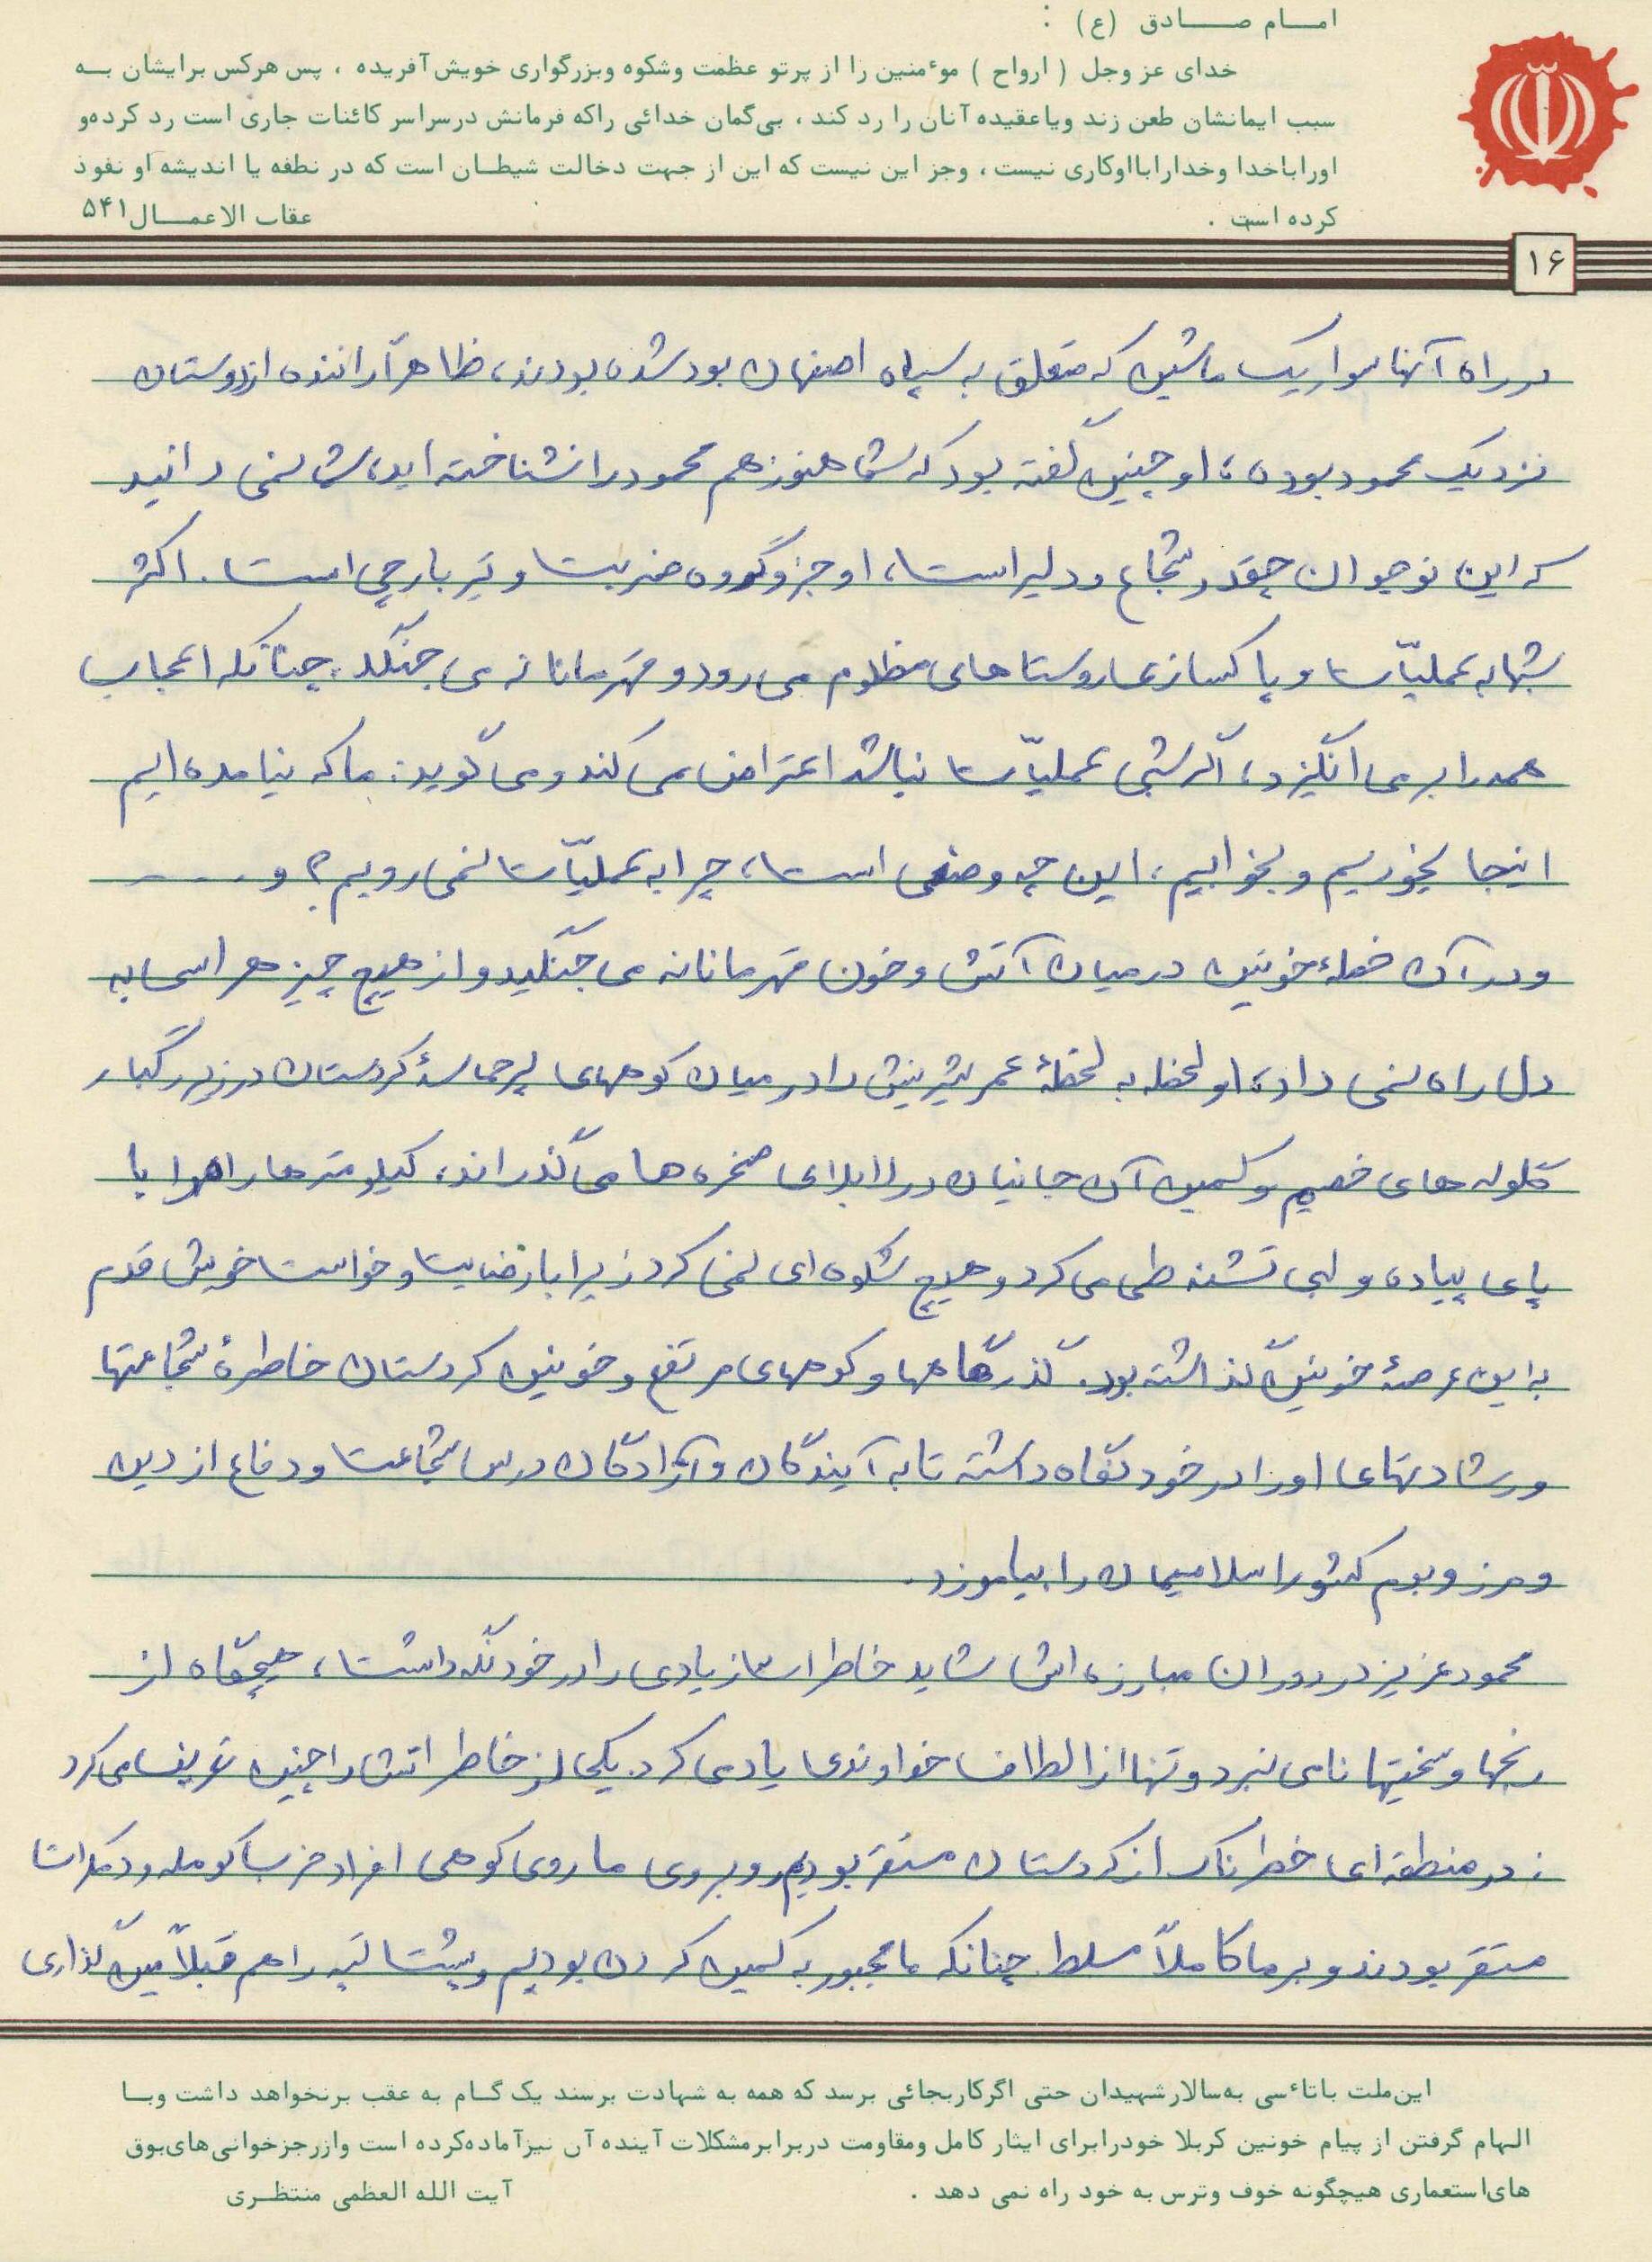 امـــام صـــــادق (ع) :
خدای عز وجل ( ارواح ) موءمنین را از پرتو عظمت وشکوه وبزرگواری خویش آفریده ، پس هرکس برایشان بــه
سبب ایمانشان طعن زند ویاعقیده آنان را رد کند ، بی‌گمان خدائی راکه فرمانش درسراسر کائنات جاری است رد کرده‌و
اوراباخدا وخداراباا‌وکاری نیست ، وجز این نیست که این از جهت دخالت شیطــان است که در نطفه یا اندیشه او نفوذ
کرده است .
عقاب الاعمـــال ۵۴۱
۱۶
در راه آنها سوار یک ماشین که متعلق به سپاه اصفهان بود شده بودند، ظاهراً راننده از دوستان
نزدیک محمود بوده، او چنین گفته بود که شما هنوز هم محمود را نشناخته اید، شما نمی دانید
که این نوجوان چقدر شجاع و دلیر است، او جزو گروه ضربت و تیربارچی است. اکثر
شبها به عملیّات و پاکسازی روستاهای مظلوم می رود و قهرمانانه می جنگد. چنانکه اعجاب
همه را برمی انگیزد، اگر شبی عملیّات نباشد اعتراض می کند و می گوید: ما که نیامده ایم
اینجا بخوریم و بخوابیم، این چه وضعی است، چرا به عملیّات نمی رویم؟ و ....
و در آن خطهٔ خونین در میان آتش و خون قهرمانانه می جنگید و از هیچ چیز هراسی به
دل راه نمی داد، او لحظه به لحظهٔ عمر شیرینش را در میان کوههای پرحماسهٔ کردستان در زیر رگبار
گلوله های خصم و کمین آن جانیان در لابلای صخره ها می گذراند، کیلومترها راه را با
پای پیاده و لبی تشنه طی می کرد و هیچ شکوه ای نمی کرد زیرا با رضایت و خواست خویش قدم
به این عرصهٔ خونین گذاشته بود. گذرگاهها و کوههای مرتفع و خونین کردستان خاطرهٔ شجاعتها
و رشادتهای او را در خود نگاه داشته تا به آیندگان و آزادگان درس شجاعت و دفاع از دین
و مرز و بوم کشور اسلامیمان را بیاموزد.
محمود عزیز در دوران مبارزه اش شاید خاطرات زیادی را در خود نگه داشت، هیچگاه از
رنجها و سختیها نامی نبرد و تنها از الطاف خداوندی یاد می کرد. یکی از خاطراتش را چنین تعریف می کرد
: در منطقه ای خطرناک از کردستان مستقر بودیم روبروی ما روی کوهی افراد حزب کومله و دمکرات
مستقر بودند و بر ما کاملاً مسلط چنانکه ما مجبور به کمین کردن بودیم و پشت تپه را هم قبلاً مین گذاری
این‌ملت باتاءسی به‌سالارشهیدان حتی اگرکاربجائی برسد که همه به شهادت برسند یک گــام به عقب برنخواهد داشت وبــا
الـهام گرفتن از پیام خونین کربلا خودرابرای ایثار کامل ومقاومت دربرابرمشکلات آینده آن نیزآماده‌کرده است وازرجزخوانی‌های‌بوق
های‌استعماری هیچگونه خوف وترس به خود راه نمی دهد .
آیت الله العظمی منتظــری